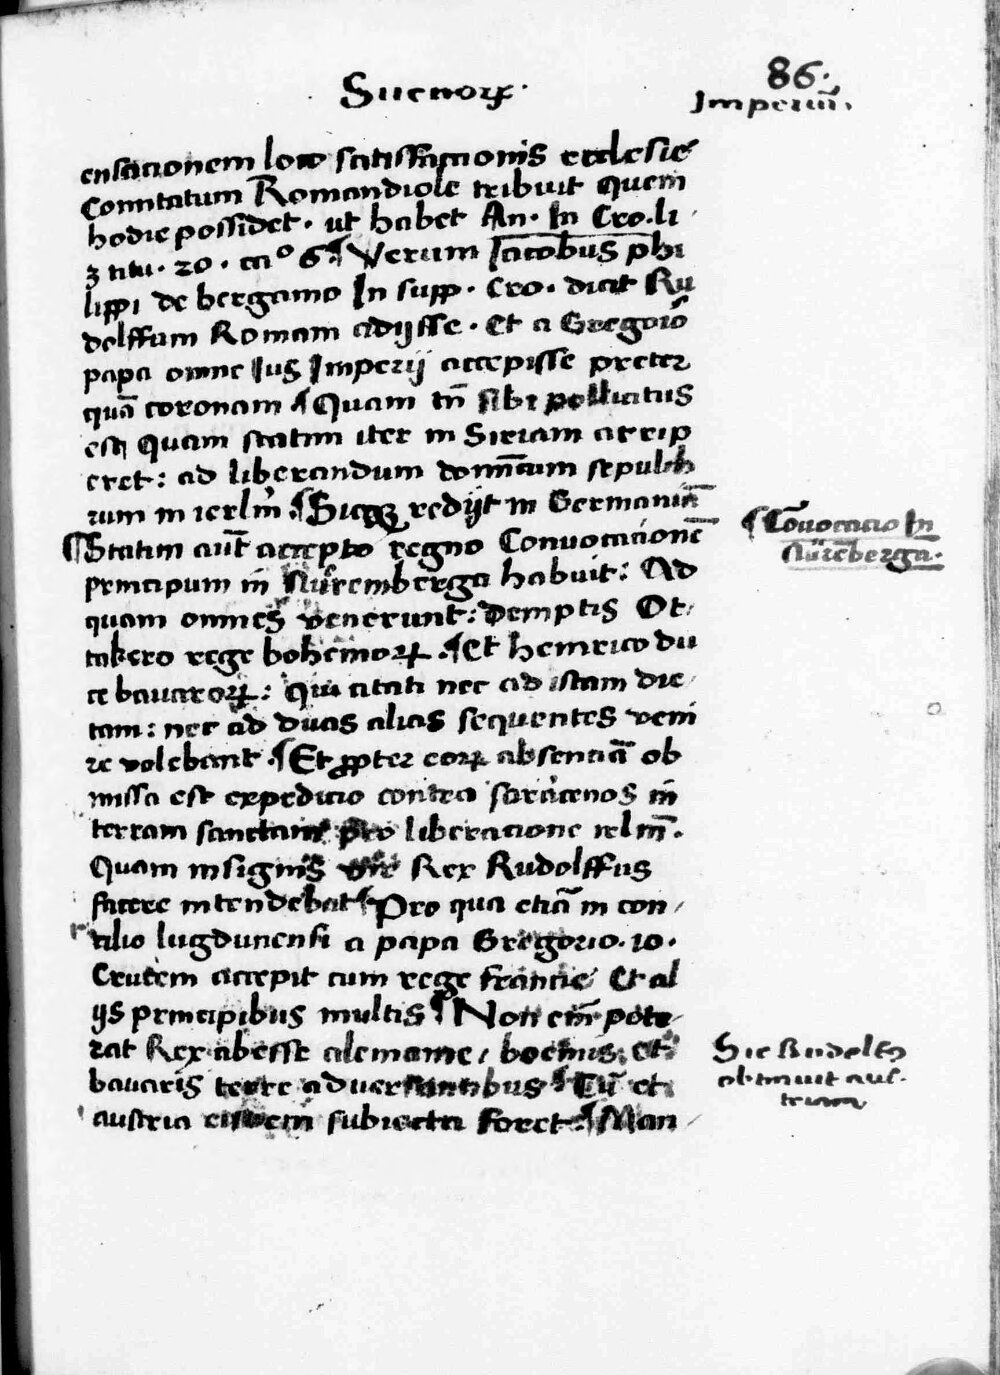 Sueuoꝝ.
86.
Imperiū.
ensacionem loco satisffactionis ecclesie
Comitatum Romandiole tribuit quem
hodie possidet. ut habet An. In Cro. li
3 titu. 20. cao 6 ¶ Verum Iacobus phi
lippi de bergamo In supp. Cro. dicit Ru
dolffum Romam adijsse. Et a Gregorio
papa omne Ius Imperij accepisse preter
quā coronam ¶ Quam tn̄ sibi pollicitus
est Quam statim iter in Siriam arrip
eret: ad liberandum dominicum sepulch
rum in ierlm̄ ¶ Sicqꝫ redijt in Germaniā
¶ Statim aūt accepto regno Conuocacionē
principum in Nūremberga habuit: Ad
quam omnes venerunt: demptis Ot
takero rege bohemoꝝ. ¶ Et heinrico du
ce bauaroꝝ: Qui citati nec ad istam die
tam: nec ad duas alias sequentes veni
re volebant. ¶ Et ꝓpter eoꝝ absenciā ob
missa est expedicio contra saracenos in
terram sanctam pro liberacione ierlm̄.
Quam insignis Rex Rudolffus
facere intendebat ¶ Pro qua etiā in con
cilio lugdunensi a papa Gregorio. 10.
Crucem accepit cum rege francie Et al
ijs principibus multis ¶ Non em̄ pote
rat Rex abesse alemanie, boemis et
bauaris terre aduersantibus ¶ Cū et
austria eisdem subiecta foret ¶ Man
¶ Cōuocacio In
Nūrēberga.
Sic Rudolffꝰ
obtinuit aus
triam